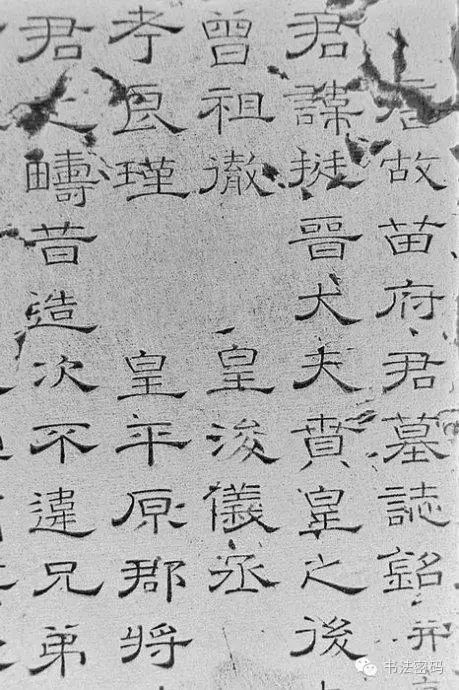 唐故苗府君墓誌銘并
君諱挺晉大夫賁皇之後
曾祖徹 皇浚儀丞
考良瑾 皇平原郡將
君之疇昔造次不違兄弟
书法密码